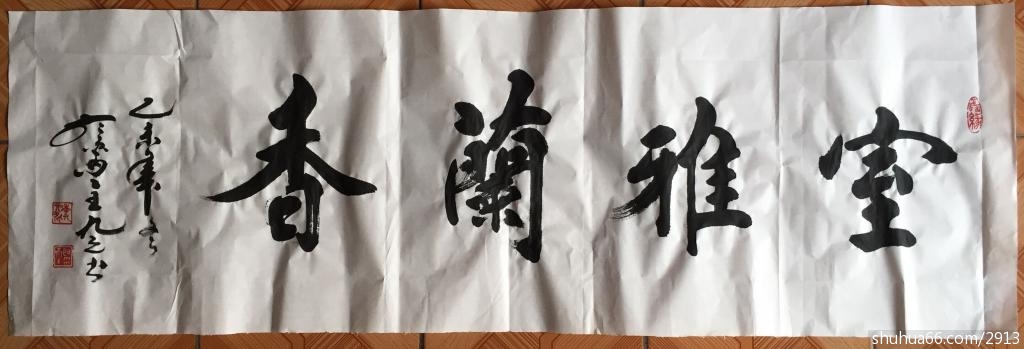 室雅蘭香
乙未年
王九之书
shuhua66.com/2913